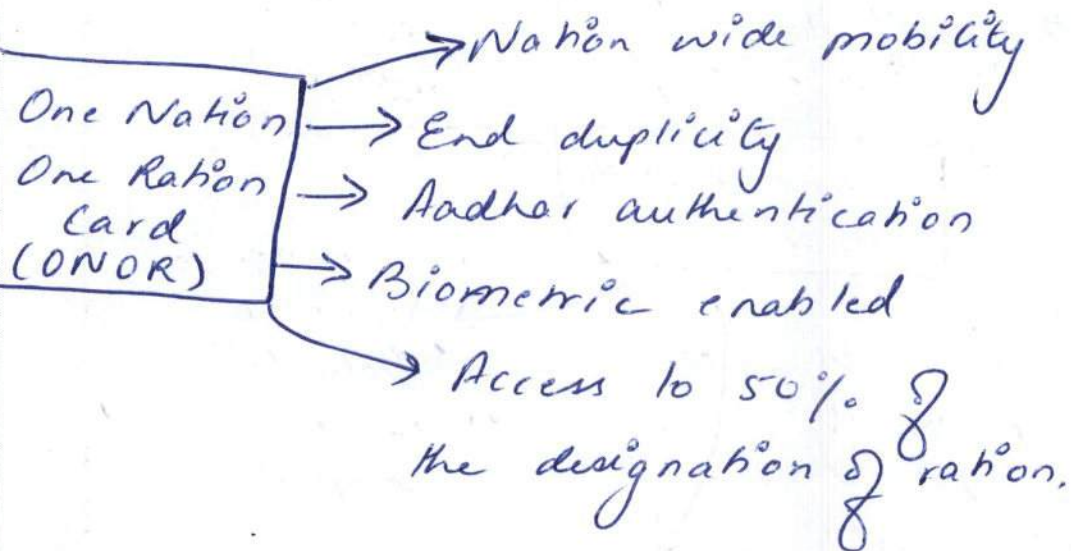 One Nation
One Ration
Card
(ONOR)
Nation wide mobility
End duplicity
Aadhar authentication
Biometric enabled
Access to 50% of
the designation of ration.